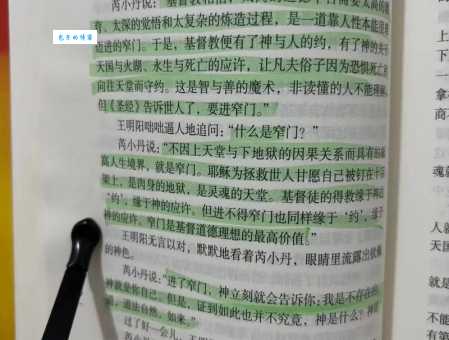 芮小丹说："基督教相信，
育、太深的觉悟和太复杂的炼造过程，是一道靠人性本能很难
迈进的窄门。于是，基督教便有了神与人的约，有了神的关于
天国与火湖、永生与死亡的应许，让凡夫俗子因为恐惧死亡和
向往天堂而守约。这是智与善的魔术，非读懂的人不能理解。
但《圣经》告诉世人了，要进窄门。"
王明阳咄咄逼人地追问："什么是窄门？"
芮小丹说："不因上天堂与下地狱的因果关系而具有的
高人生境界，就是窄门。耶稣为拯救世人甘愿自己被钉在十字
架上，是肉身的地狱，是灵魂的天堂。基督徒的得救缘于神的
'约'，缘于神的应许。但进不得窄门也同样缘于'约'，缘于
神的应许。窄门是基督道德理想的最高价值。"
王明阳无言以对，默默地看着芮小丹，眼睛里流露出
的神色。
芮小丹说："进了窄门，神立刻就会告诉你：我是不存在的
神就是你自己。但是，证到如此也并不究竟，神是什么？神即
道，道法自然，如来。"
过了好一会儿，王明
芮小丹
包子的情客
上
下
一
拿
商不
魂就
人就
天国
就是
不能
有第